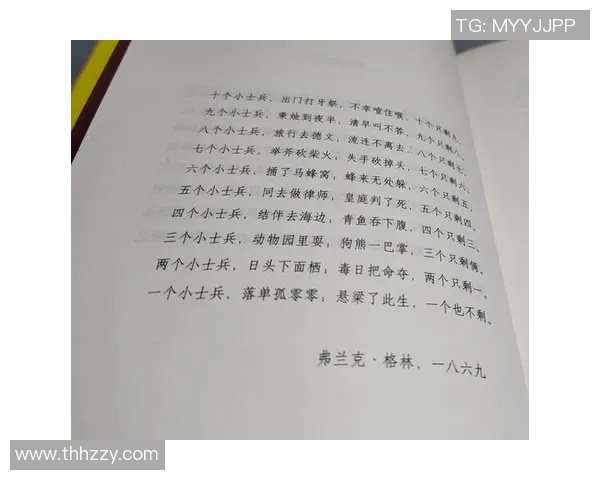 TG: MYYJJPP
十个小士兵，出门打牙祭，不幸噎住喉，十个只剩九。
九个小士兵，秉烛到夜半，清早叫不答，九个只剩八。
八个小士兵，旅行去德文，流连不离去，八个只剩七。
七个小士兵，举斧砍柴火，失手砍掉头，七个只剩六。
六个小士兵，捅了马蜂窝，蜂来无处躲，六个只剩五。
五个小士兵，同去做律师，皇庭判了死，五个只剩四。
四个小士兵，结伴去海边；青鱼吞下腹，四个只剩三。
三个小士兵，动物园里耍；狗熊一巴掌，三个只剩俩。
两个小士兵，日头下面栖；毒日把命夺，两个只剩一。
一个小士兵，落单孤零零；悬梁了此生，一个也不剩。
弗兰克·格林，一八六九
www.thhzzy.com